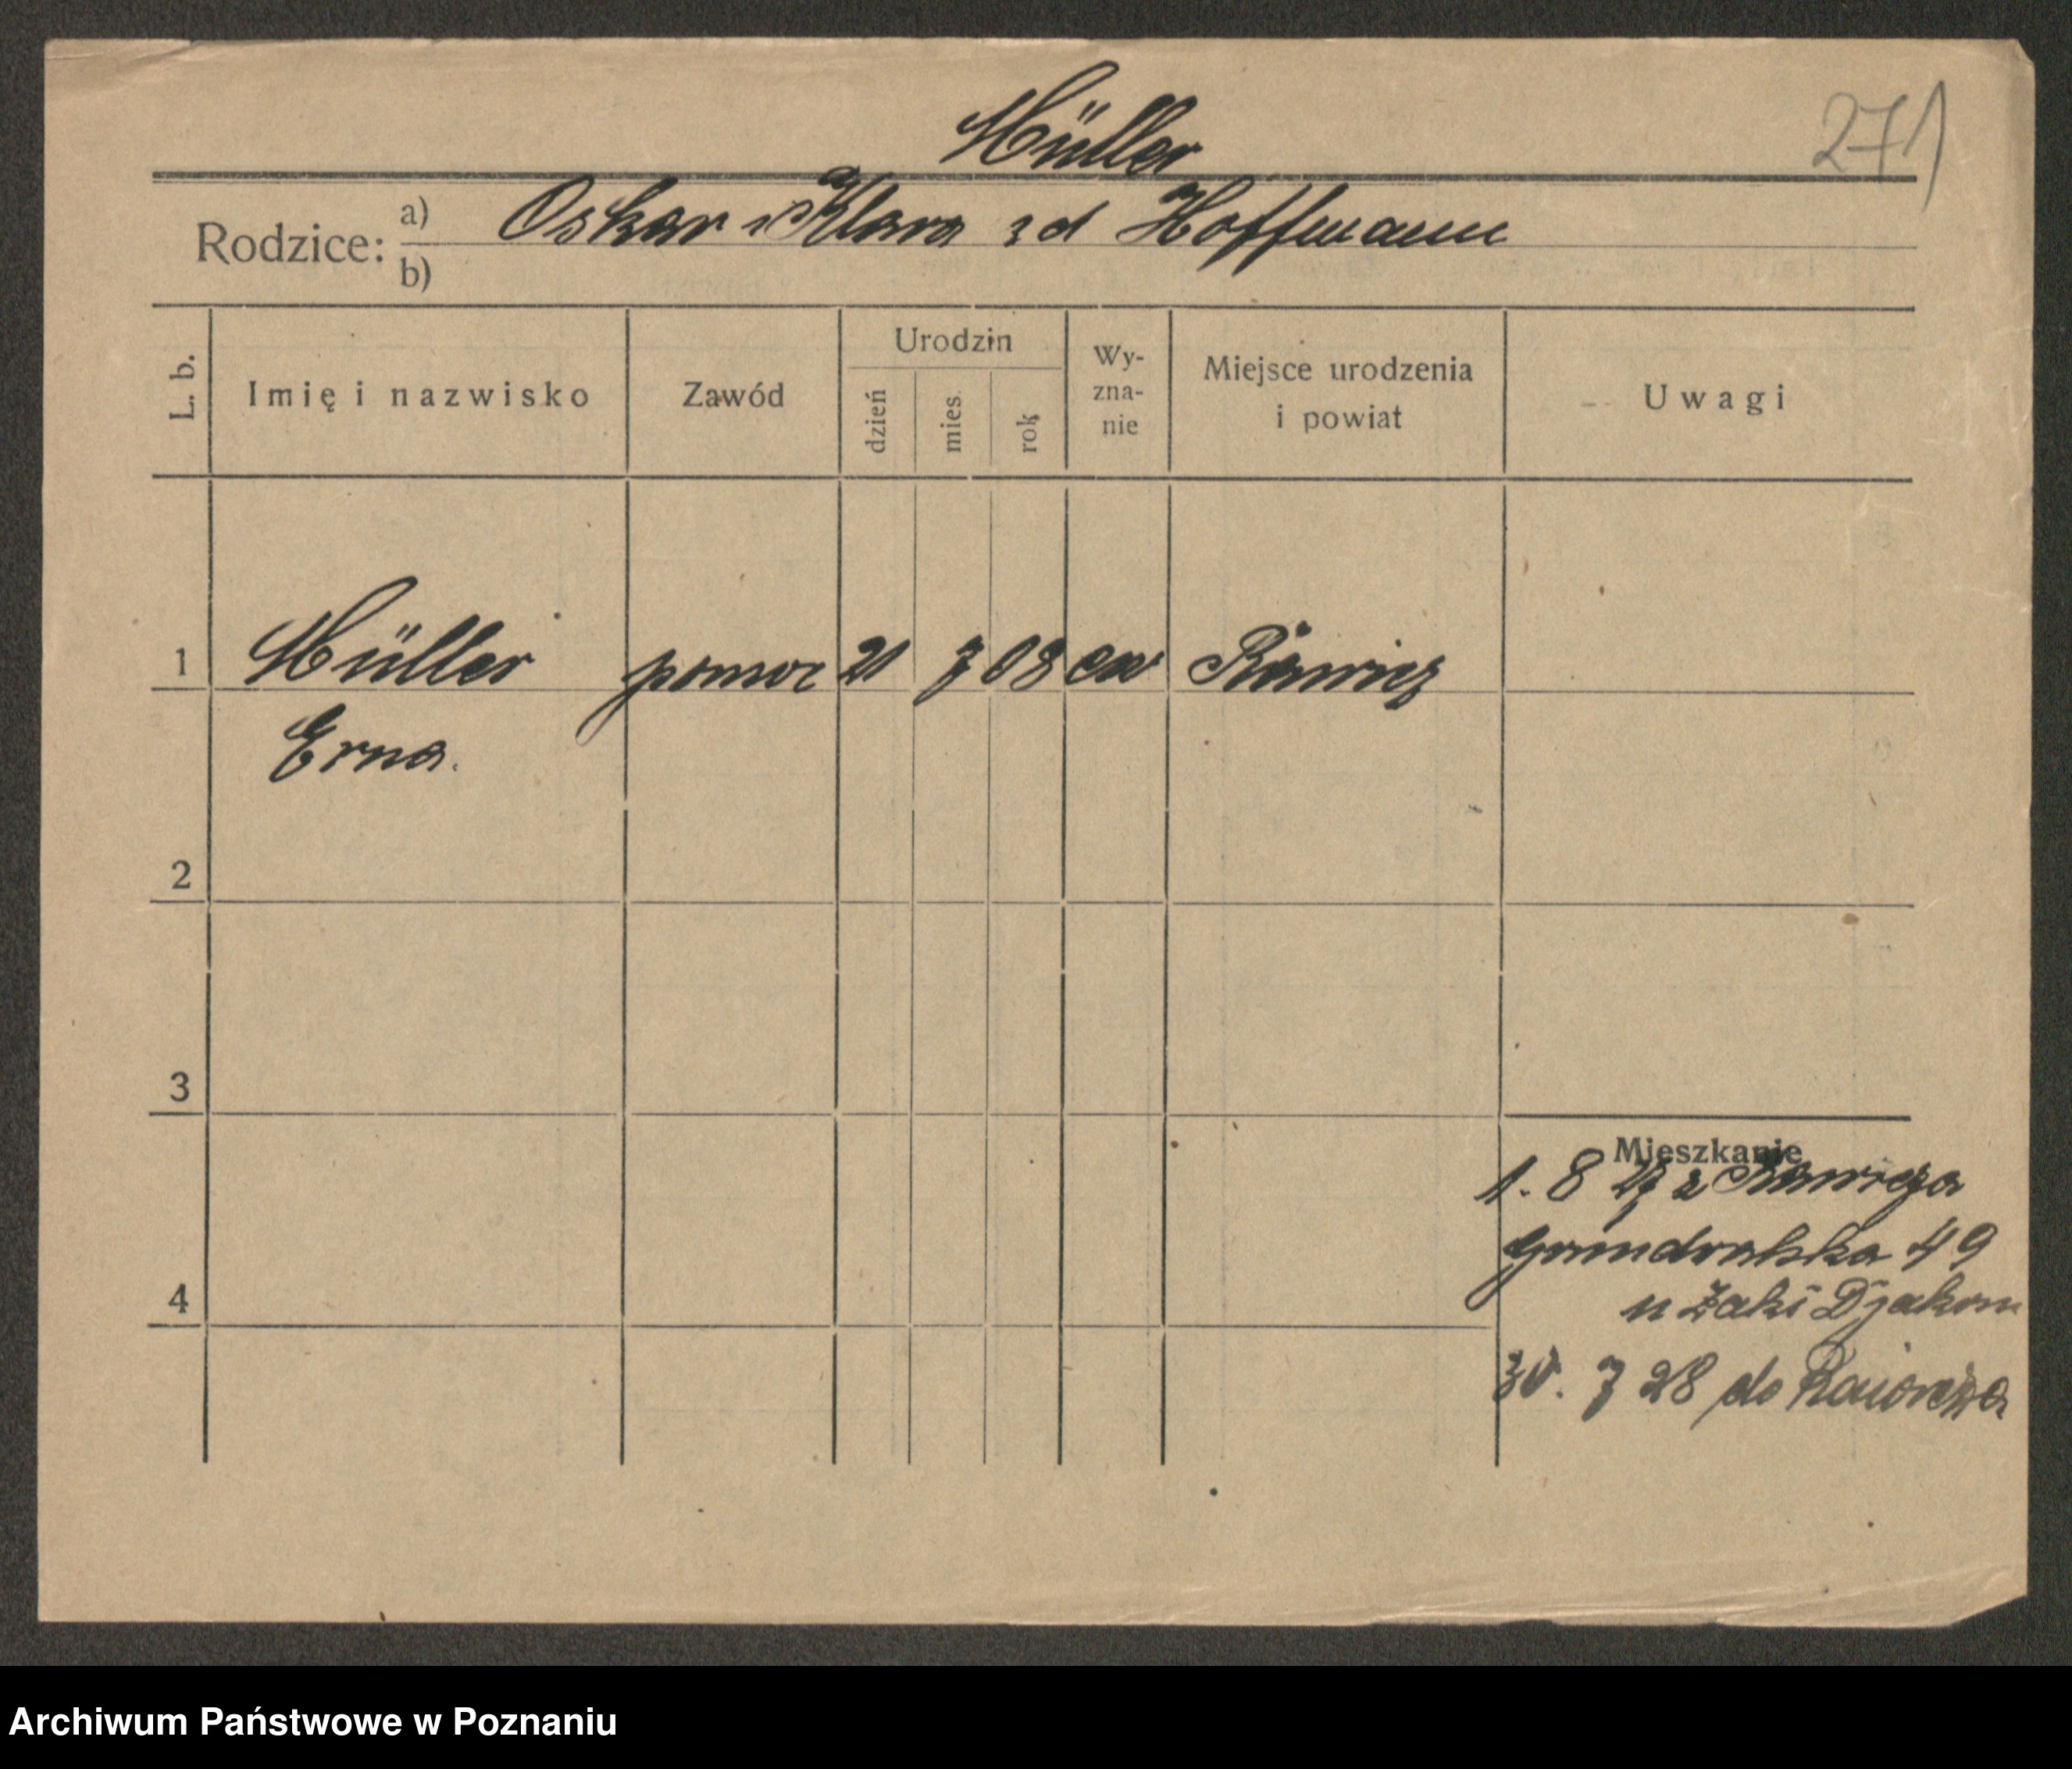 Müller
271
Rodzice: a) Oskar i Klara zd Hoffmann
b)
L. b. Imię i nazwisko Zawód Urodzin dzień mies. rok Wy-zna-nie Miejsce urodzenia i powiat Uwagi
1 Müller pomoc 21 7 08 ew Rawicz
Erna.
2
3
Mieszkanie
1. 8 27 z Rawicza
49
4
u Zakł Djakon
30. 7 28 do Rawicza
Archiwum Państwowe w Poznaniu